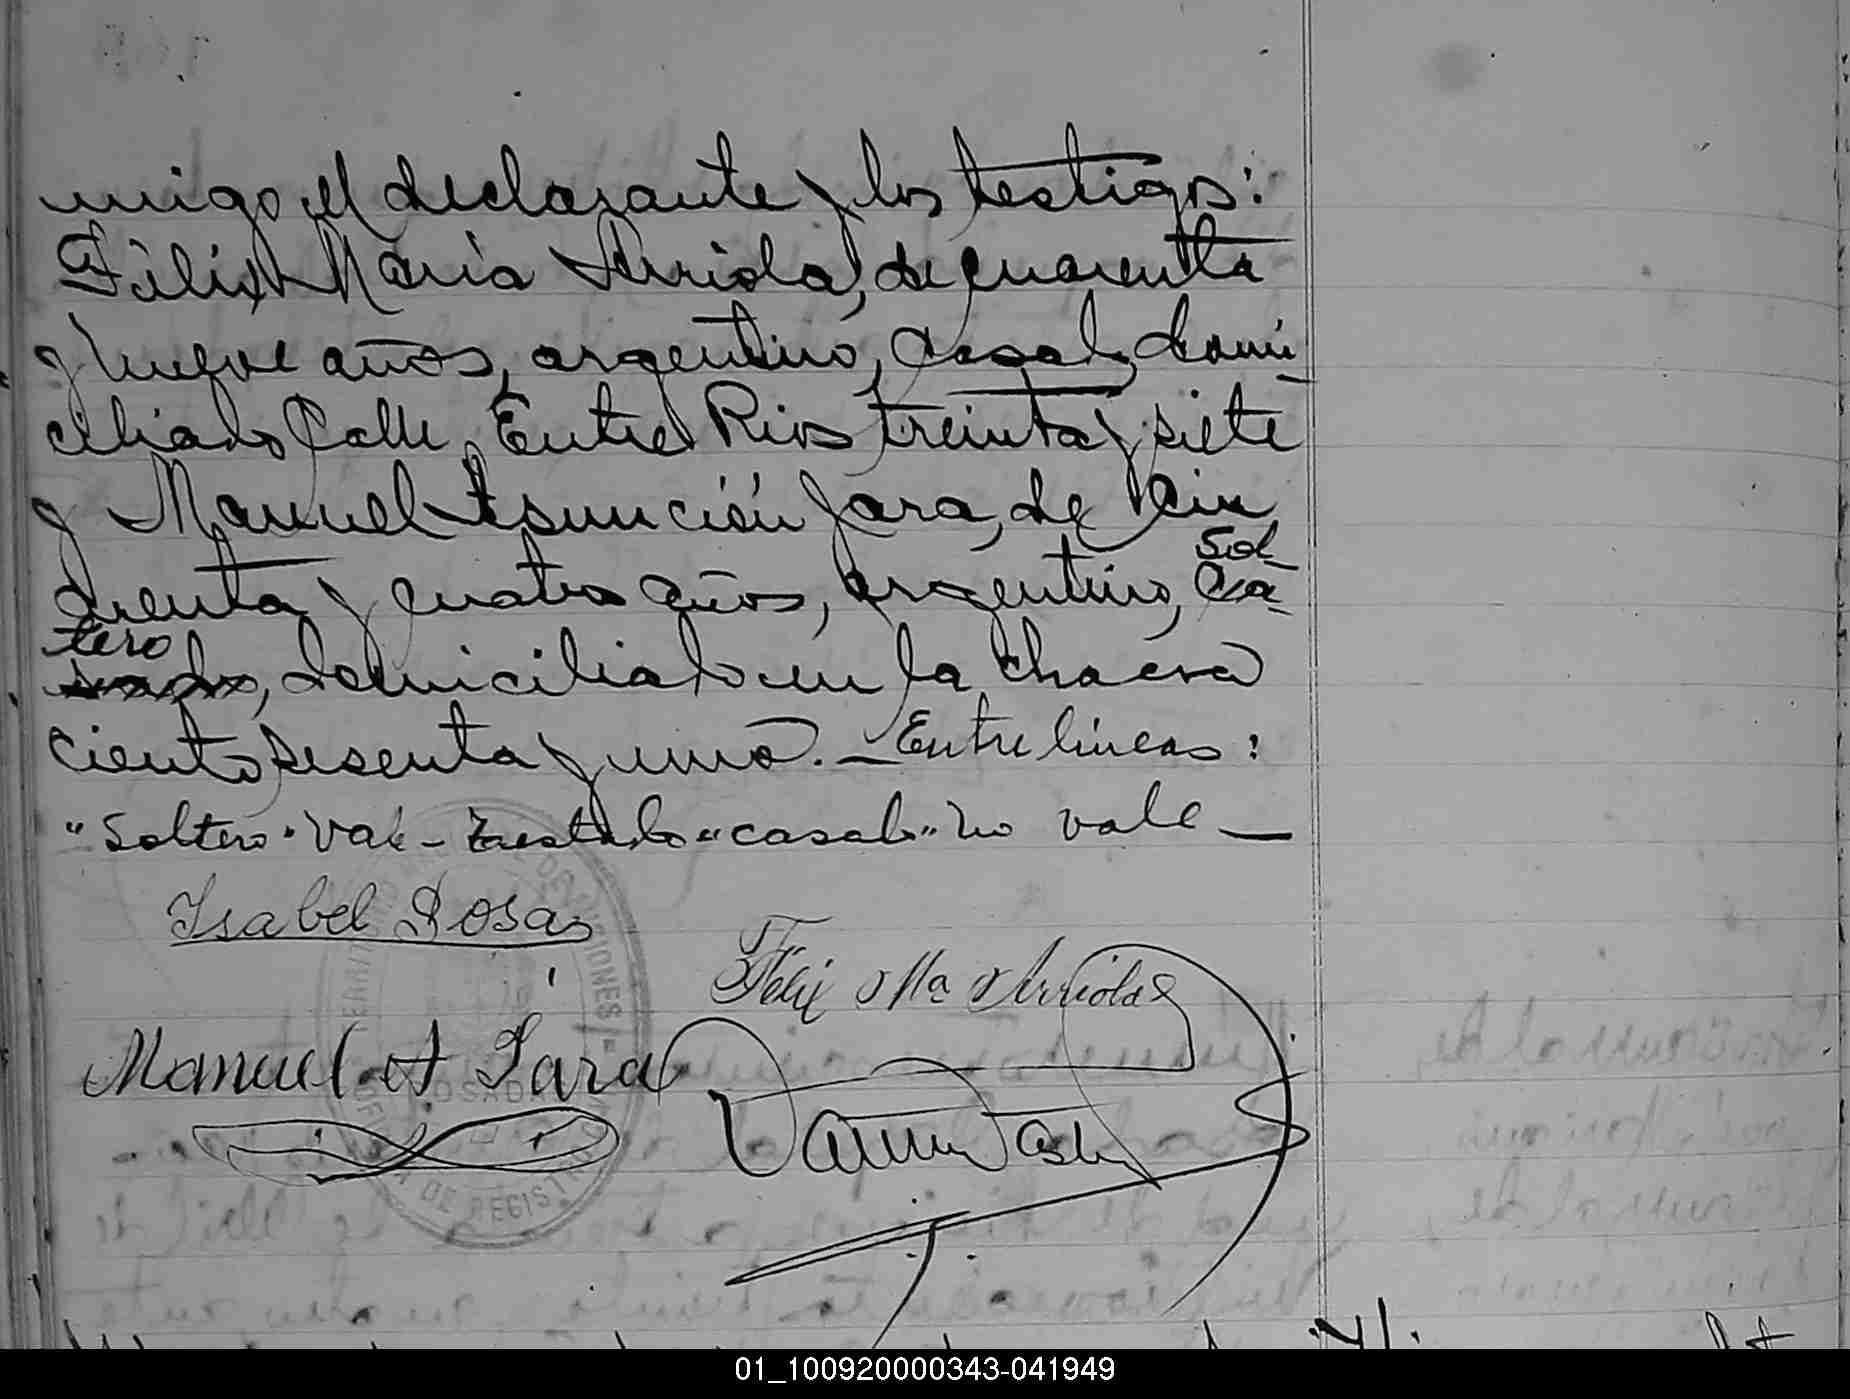 migo el declarante y los testigos:
Félix María Arriola, de cuarenta
y nueve años, argentino, casado, domi-
ciliado Calle Entre Rios treinta y siete
y Manuel Asunción Jara, de cin
cuenta y cuatro años, argentino, ca-
Sol-
tero
sado, domiciliado en la chacra
ciento sesenta y uno. — Entre lineas:
"Soltero" Vale - Testado "casado" no vale —
Isabel Sosa
Félix Ma Arriola
Manuel A Jara
DE MISIONES
POSADAS
DE REGISTR
01_100920000343-041949